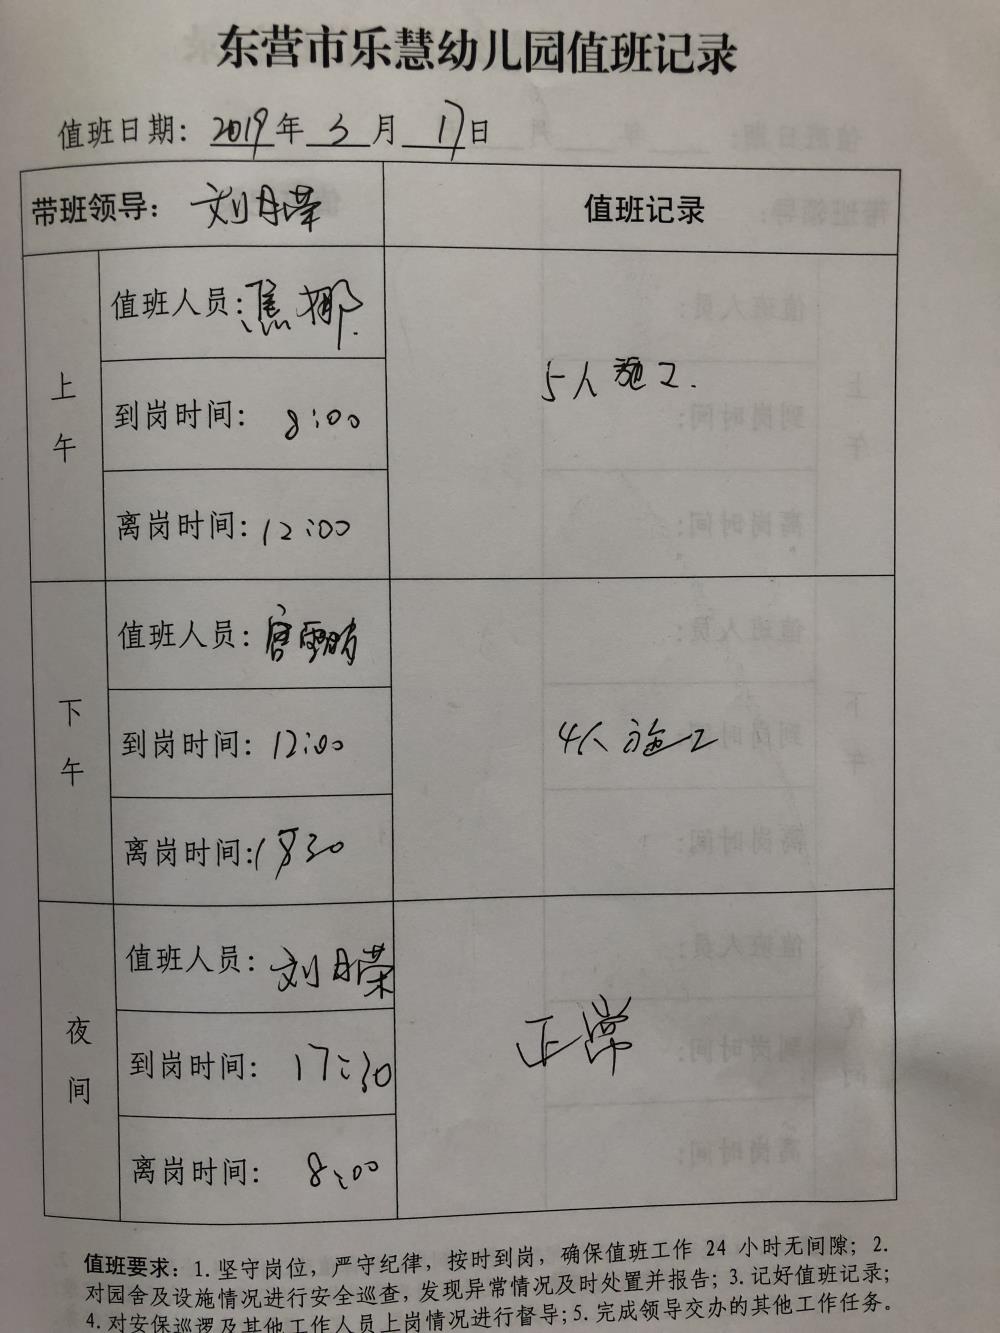 东营市乐慧幼儿园值班记录
值班日期：2019年 3 月 17日
带班领导：刘月荣
值班记录
上午
值班人员：焦娜
到岗时间：8:00
离岗时间：12:00
5人施工.
下午
值班人员：
到岗时间：12:00
离岗时间：1730
4人施工
夜间
值班人员：刘月荣
到岗时间：17:30
离岗时间：8:00
正常
值班要求：1. 坚守岗位，严守纪律，按时到岗，确保值班工作 24 小时无间隙；2.
对园舍及设施情况进行安全巡查，发现异常情况及时处置并报告；3. 记好值班记录；
4. 对安保巡逻及其他工作人员上岗情况进行督导；5. 完成领导交办的其他工作任务。